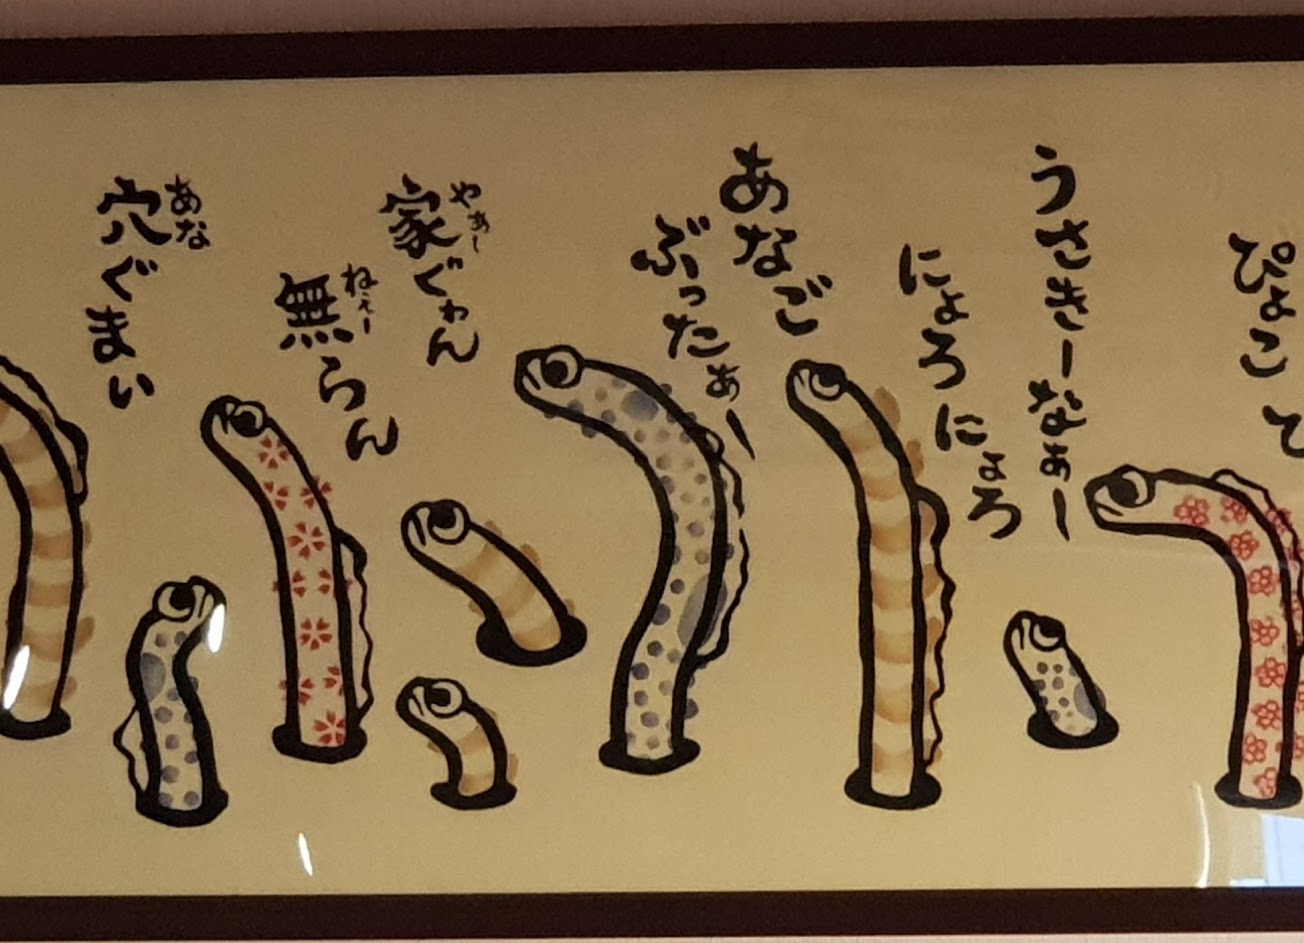 ぴょこ
うさきーなぁー
にょろにょろ
あなご
ぶったぁー
やぁー
家ぐゎん
ねぇー
無らん
あな
穴ぐまい